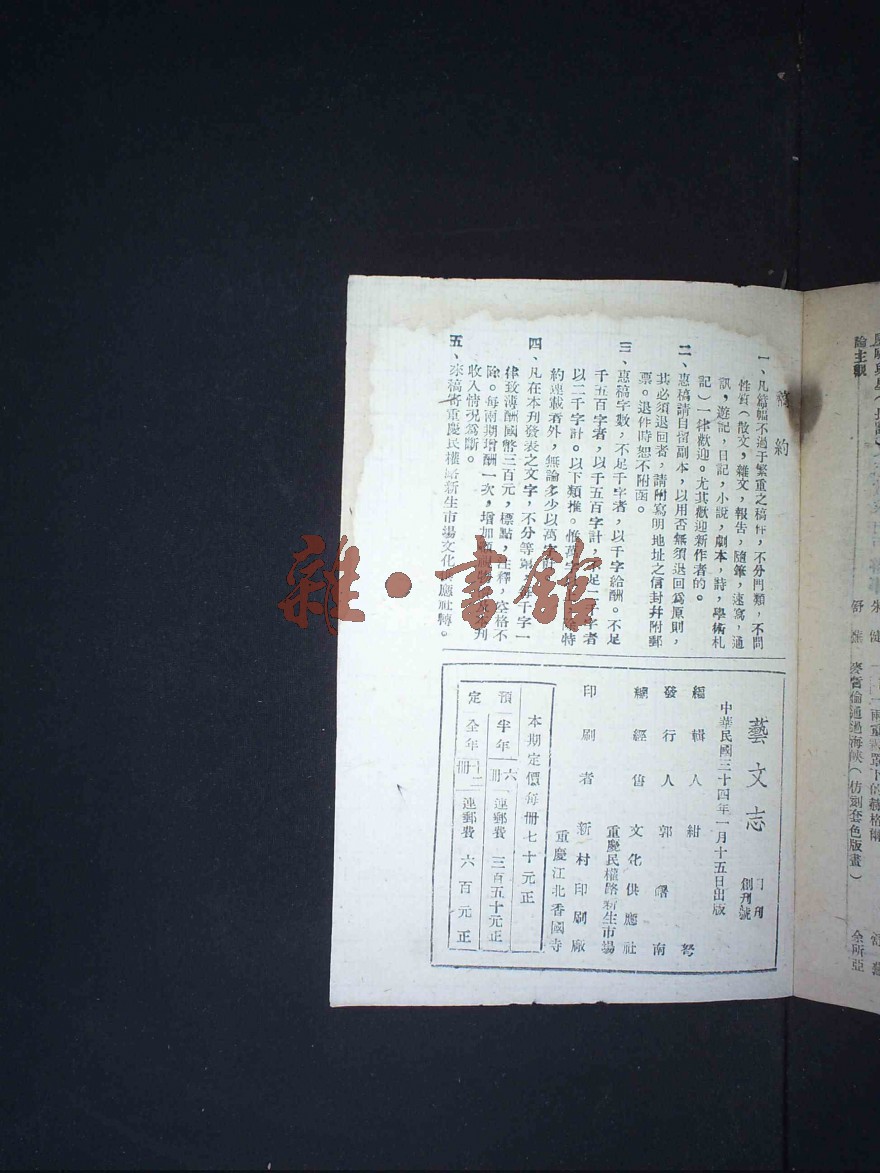 稿約
一、凡篇幅不過于繁重之稿件，不分門類，不問
性質（散文，雜文，報告，隨筆，速寫，通
訊，遊記，日記，小說，劇本，詩，學術札
記）一律歡迎。尤其歡迎新作者的。
二、惠稿請自留副本，以用否無須退回爲原則，
其必須退回者，請附寫明地址之信封幷附郵
票。退件時恕不附函。
三、惠稿字數，不足千字者，以千字給酬。不足
千五百字者，以千五百字計，不足二千字者
以二千字計。以下類推。惟萬字
特
約連載者外，無論多少以萬字計
四、凡在本刊發表之文字，不分等
千字一
律致薄酬國幣三百元，標點，注釋，空格不
除。每兩期增酬一次，增加
刊
收入情况爲斷。
五、來稿寄重慶民權路新生市場文化供應社轉。
藝文志
月刊
創刊號
中華民國三十四年一月十五日出版
編輯人 紺弩
發行人 郭曙南
總經售 文化供應社
重慶民權路新生市場
印刷者 新村印刷廠
重慶江北香國寺
本期定價每册七十元正
預定
半年 六册 連郵費 三百五十元正
全年 十二册 連郵費 六百元正
朱健
雨重
罩下的赫格爾
論主觀
舒蕪
麥唐倫通過海峽（仿刻套色版畫）
余所亞
雜·書館